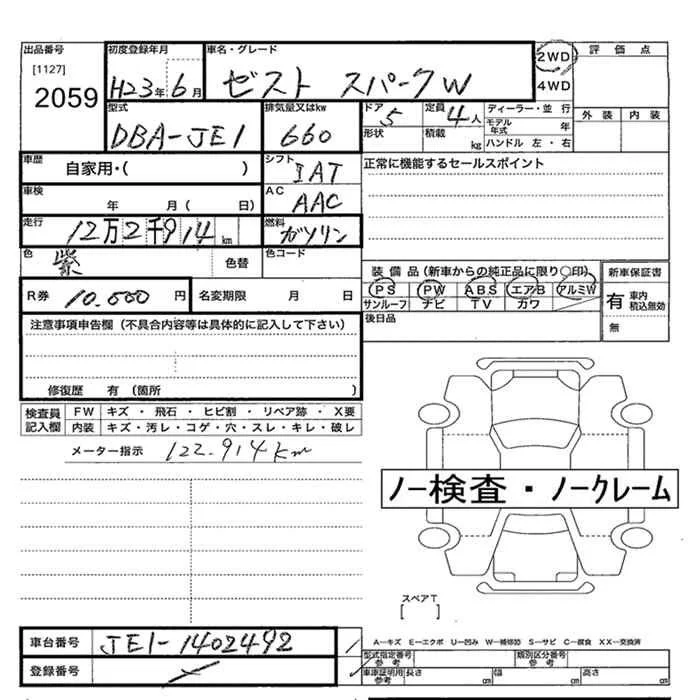 出品番号 初度登録年月 車名・グレード 2WD 評価点
[1127] 2059 H23年 6月 ゼスト スパークW 4WD
型式 排気量又はkw ドア 5 定員 4人 ディーラー・並行 外装 内装
DBA-JE1 660 形状 積載 kg モデル年式 年
ハンドル 左・右
車歴 自家用・( ) シフト IAT 正常に機能するセールスポイント
車検 年 月( 日) AC AAC
走行 12万2千914km 燃料 ガソリン
色 紫 色替 色コード
装備品(新車からの純正品に限り○印) 新車保証書
R券 10.000円 名変期限 月 日 PS PW ABS エアB アルミW 有 車内 税込無効
サンルーフ ナビ TV カワ
注意事項申告欄(不具合内容等は具体的に記入して下さい) 後日品 無
修復歴 有(箇所 )
検査員記入欄 FW キズ・飛石・ヒビ割・リペア跡・X要
内装 キズ・汚レ・コゲ・穴・スレ・キレ・破レ
メーター指示 122.914km
ノー検査・ノークレーム
スペアT
[ ]
車台番号 JE1-1402492
A-キズ E-エクボ U-凹み W-補修跡 S-サビ C-腐食 XX-交換済
型式指定番号 参考 類別区分番号 参考
登録番号 車庫証明用 参考 長さ cm 幅 cm 高さ cm